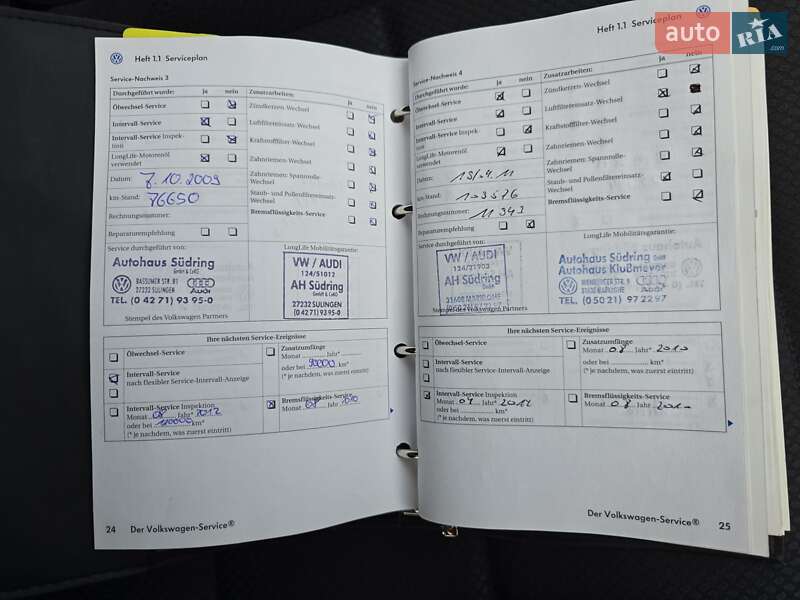 Heft 1.1 Serviceplan
Service-Nachweis 3
Durchgeführt wurde: ja nein Zusatzarbeiten: ja nein
Ölwechsel-Service Zündkerzen-Wechsel
Intervall-Service Luftfiltereinsatz-Wechsel
Intervall-Service Inspektion Kraftstofffilter-Wechsel
LongLife-Motorenöl verwendet Zahnriemen-Wechsel
Datum: 7.10.2009 Zahnriemen: Spannrolle-Wechsel
km-Stand: 76650 Staub- und Pollenfiltereinsatz-Wechsel
Rechnungsnummer: Bremsflüssigkeits-Service
Reparaturempfehlung
Service durchgeführt von: LongLife Mobilitätsgarantie:
Autohaus Südring
GmbH & CoKG
BASSUMER STR. 81
27232 SULINGEN
Audi
TEL. (0 42 71) 93 95-0
VW / AUDI
124/51012
AH Südring
GmbH & CoKG
27232 SULINGEN
(0 42 71) 93 95-0
Stempel des Volkswagen Partners
Ihre nächsten Service-Ereignisse
Ölwechsel-Service
Intervall-Service
nach flexibler Service-Intervall-Anzeige
Intervall-Service Inspektion
Monat 08 Jahr* 2012
oder bei km*
(* je nachdem, was zuerst eintritt)
Zusatzumfänge
Monat Jahr*
oder bei 90000 km*
(* je nachdem, was zuerst eintritt)
Bremsflüssigkeits-Service
Monat 08 Jahr
24 Der Volkswagen-Service®
Heft 1.1 Serviceplan
auto RIA.com
Service-Nachweis 4
Durchgeführt wurde: ja nein Zusatzarbeiten: ja nein
Ölwechsel-Service Zündkerzen-Wechsel
Intervall-Service Luftfiltereinsatz-Wechsel
Intervall-Service Inspektion Kraftstofffilter-Wechsel
LongLife-Motorenöl verwendet Zahnriemen-Wechsel
Datum: Zahnriemen: Spannrolle-Wechsel
km-Stand: 103576 Staub- und Pollenfiltereinsatz-Wechsel
Rechnungsnummer: 11343 Bremsflüssigkeits-Service
Reparaturempfehlung
Service durchgeführt von: LongLife Mobilitätsgarantie:
VW / AUDI
AH Südring
Autohaus Südring GmbH
Autohaus Klußmeyer
Audi
TEL. (0 50 21) 97 22 97
Stempel des Volkswagen Partners
Ihre nächsten Service-Ereignisse
Ölwechsel-Service
Intervall-Service
nach flexibler Service-Intervall-Anzeige
Intervall-Service Inspektion
Monat Jahr* 2012
oder bei km*
(* je nachdem, was zuerst eintritt)
Zusatzumfänge
Monat 08 Jahr* 2010
oder bei km*
(* je nachdem, was zuerst eintritt)
Bremsflüssigkeits-Service
Monat 08 Jahr
Der Volkswagen-Service® 25